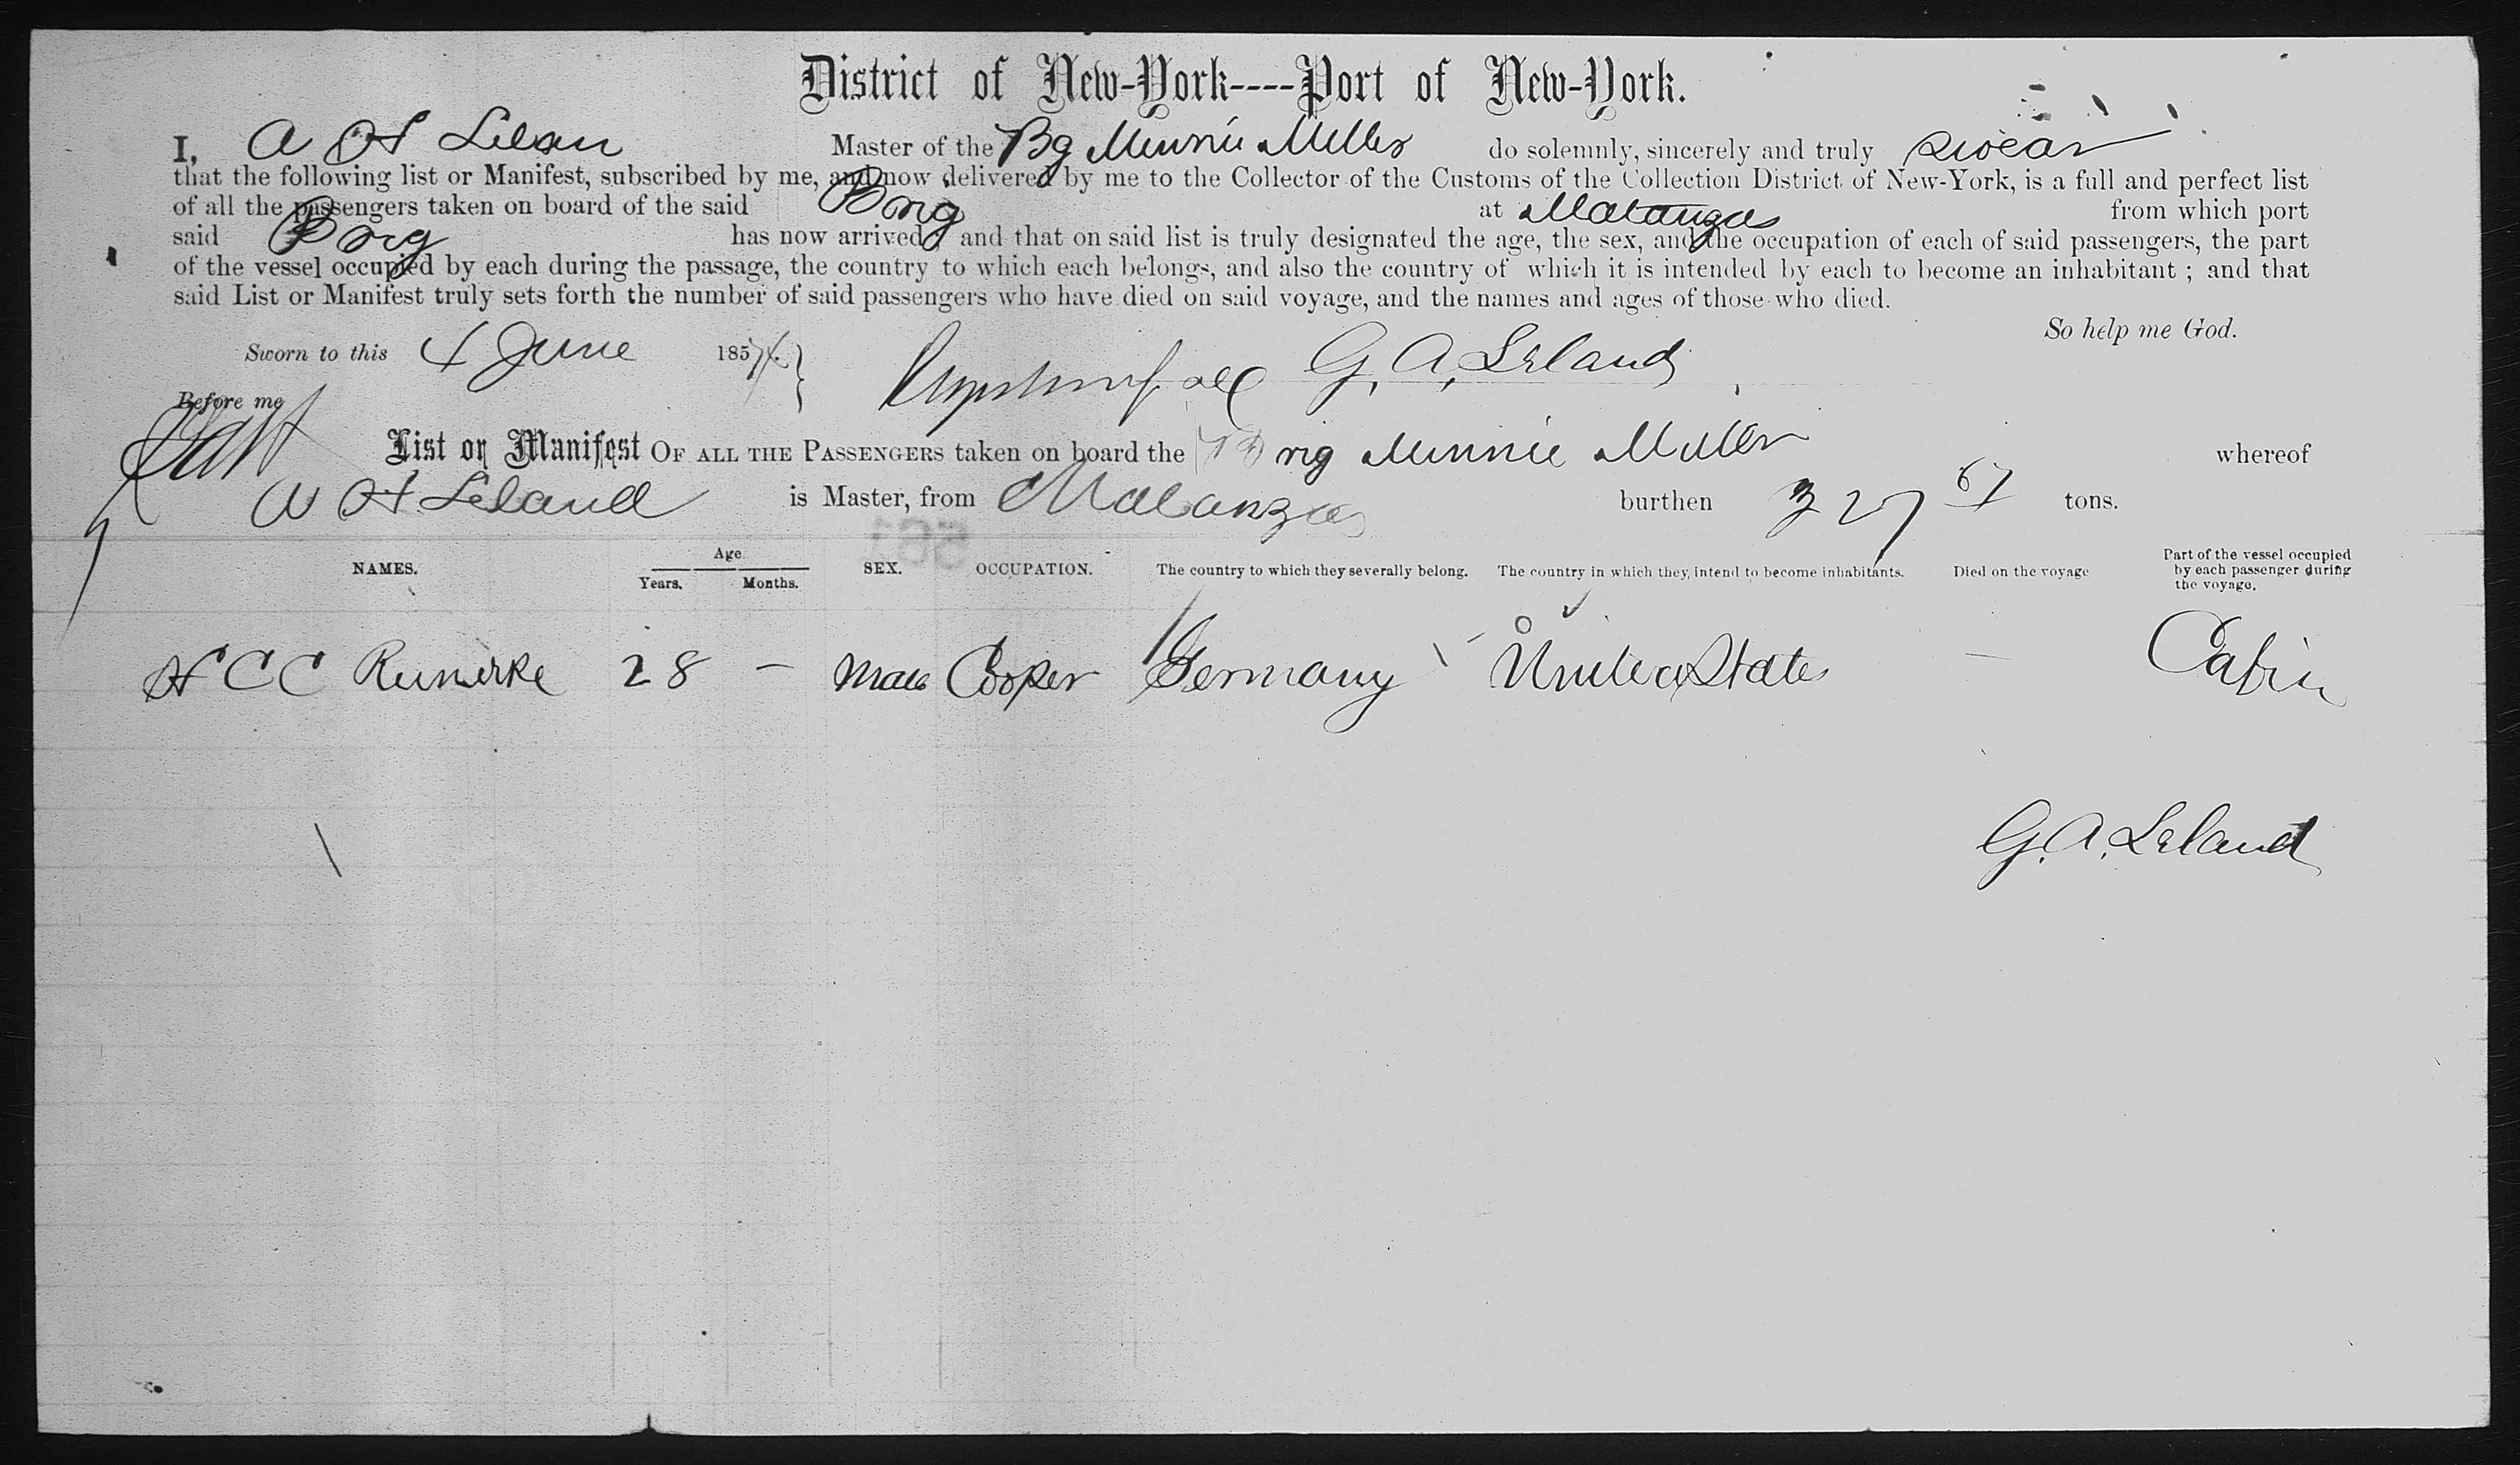 District of New-York----Port of New-York.
I, A H Lelan Master of the Bg Minnie Miller do solemnly, sincerely and truly swear
that the following list or Manifest, subscribed by me, and now delivered by me to the Collector of the Customs of the Collection District of New-York, is a full and perfect list
of all the passengers taken on board of the said Brig at Matanzas from which port
said Brig has now arrived, and that on said list is truly designated the age, the sex, and the occupation of each of said passengers, the part
of the vessel occupied by each during the passage, the country to which each belongs, and also the country of which it is intended by each to become an inhabitant ; and that
said List or Manifest truly sets forth the number of said passengers who have died on said voyage, and the names and ages of those who died.
So help me God.
Sworn to this 4 June 185 G. A. Leland
Before me
List or Manifest OF ALL THE PASSENGERS taken on board the Brig Minnie Miller whereof
H Leland is Master, from Matanzas burthen 327 67 tons.
NAMES. Age Years. Months. SEX. OCCUPATION. The country to which they severally belong. The country in which they intend to become inhabitants. Died on the voyage Part of the vessel occupied by each passenger during the voyage.
H C C 28 — Male Cooper Germany United States — Cabin
G. A. Leland